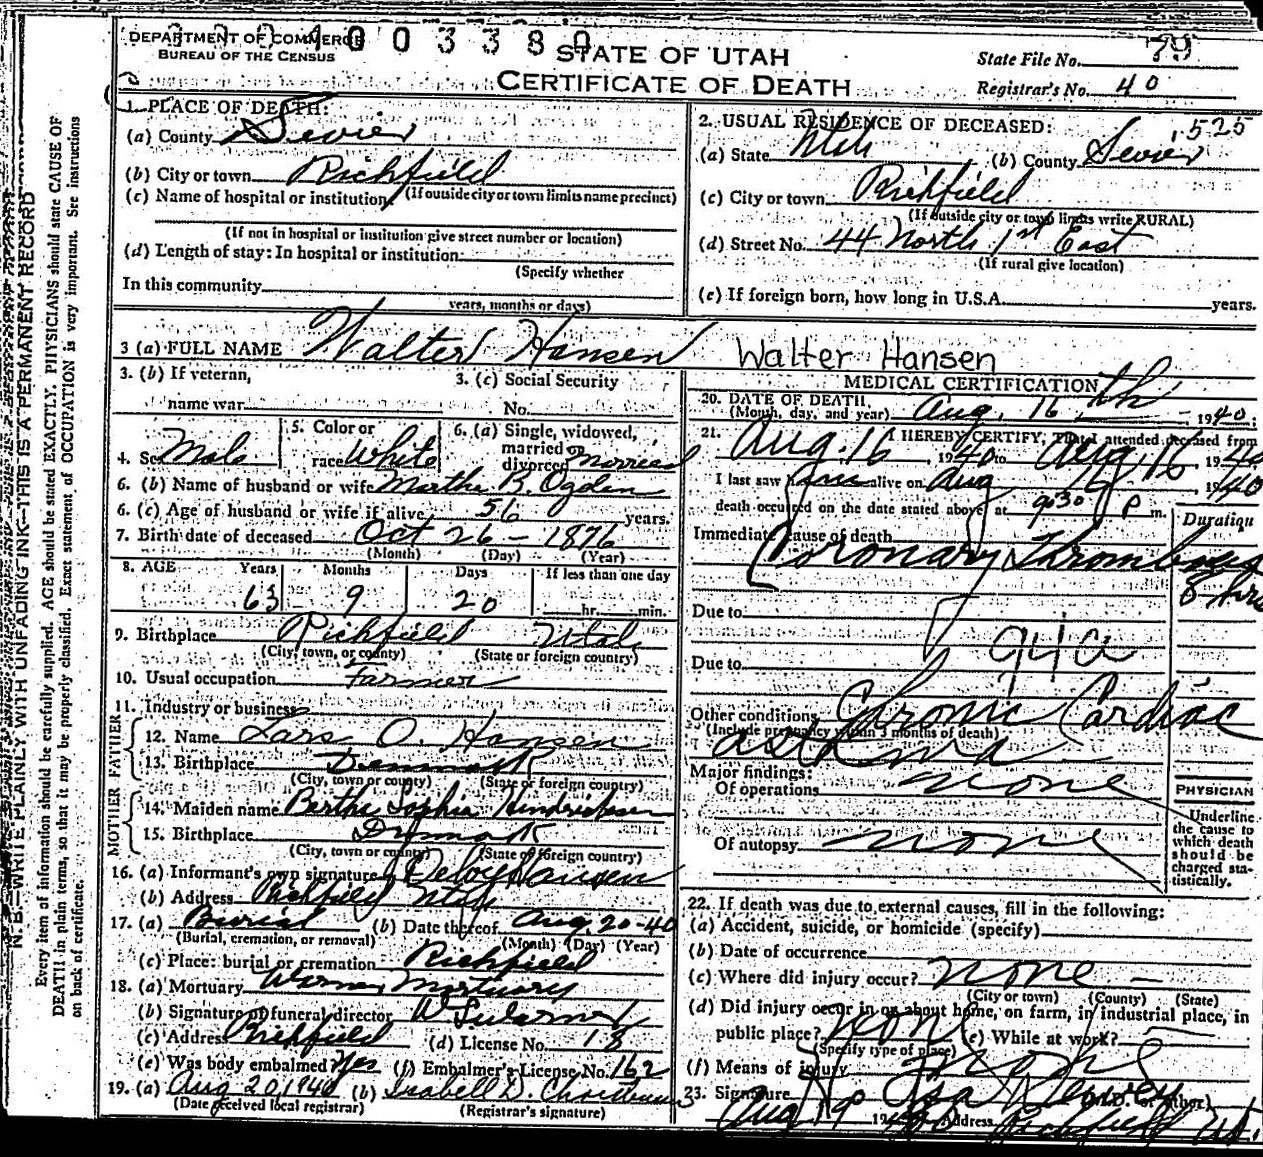 DEPARTMENT OF COMMERCE
BUREAU OF THE CENSUS
0 0 3 3 8 0
STATE OF UTAH
CERTIFICATE OF DEATH
State File No. 79
Registrar's No. 40
1. PLACE OF DEATH:
(a) County Sevier
(b) City or town Richfield
(If outside city or town limits name precinct)
(c) Name of hospital or institution
(If not in hospital or institution give street number or location)
(d) Length of stay: In hospital or institution
(Specify whether
In this community
years, months or days)
2. USUAL RESIDENCE OF DECEASED: 525
(a) State Utah (b) County Sevier
(c) City or town Richfield
(If outside city or town limits write RURAL)
(d) Street No. 44 North 1st East
(If rural give location)
(e) If foreign born, how long in U.S.A. years.
3 (a) FULL NAME Walter Hansen Walter Hansen
3. (b) If veteran,
name war
3. (c) Social Security
No.
4. Sex Male
5. Color or
race White
6. (a) Single, widowed,
married or
divorced married
6. (b) Name of husband or wife Martha B. Ogden
6. (c) Age of husband or wife if alive 56 years.
7. Birth date of deceased Oct 26 - 1876
(Month) (Day) (Year)
8. AGE Years Months Days If less than one day
63 9 20 hr. min.
9. Birthplace Richfield Utah
(City, town, or county) (State or foreign country)
10. Usual occupation Farmer
11. Industry or business
FATHER
12. Name Lars O. Hansen
13. Birthplace Denmark
(City, town or county) (State of foreign country)
MOTHER
14. Maiden name Bertha Sophia Hendricksen
15. Birthplace Denmark
(City, town or county) (State of foreign country)
16. (a) Informant's own signature Deloy Hansen
(b) Address Richfield Utah
17. (a) Burial (b) Date thereof Aug. 20-40
(Burial, cremation, or removal) (Month) (Day) (Year)
(c) Place: burial or cremation Richfield
18. (a) Mortuary Mortuary
(b) Signature of funeral director
(c) Address Richfield (d) License No. 18
(e) Was body embalmed? Yes (f) Embalmer's License No. 162
19. (a) Aug 20, 1940 (b) Isabell D.
(Date received local registrar) (Registrar's signature)
MEDICAL CERTIFICATION
20. DATE OF DEATH
(Month, day, and year) Aug. 16 th 1940
21. I HEREBY CERTIFY, That I attended deceased from
Aug. 16 1940 to Aug. 16 1940
I last saw him alive on Aug 16 1940
death occurred on the date stated above at 9:30 P m.
Duration
Immediate cause of death
Coronary Thrombosis
8 hrs
Due to
94a
Due to
Other conditions Chronic Cardiac
(Include pregnancy within 3 months of death)
asthma
Major findings:
Of operations none
Of autopsy none
PHYSICIAN
Underline
the cause to
which death
should be
charged sta-
tistically.
22. If death was due to external causes, fill in the following:
(a) Accident, suicide, or homicide (specify)
(b) Date of occurrence
(c) Where did injury occur? none
(City or town) (County) (State)
(d) Did injury occur in or about home, on farm, in industrial place, in
public place? none (e) While at work?
(Specify type of place)
(f) Means of injury none
23. Signature (M.D. or other)
Aug 19 1940 Address Richfield Ut.
N.B.—WRITE PLAINLY WITH UNFADING INK—THIS IS A PERMANENT RECORD
Every item of information should be carefully supplied. AGE should be stated EXACTLY. PHYSICIANS should state CAUSE OF
DEATH in plain terms, so that it may be properly classified. Exact statement of OCCUPATION is very important. See instructions
on back of certificate.